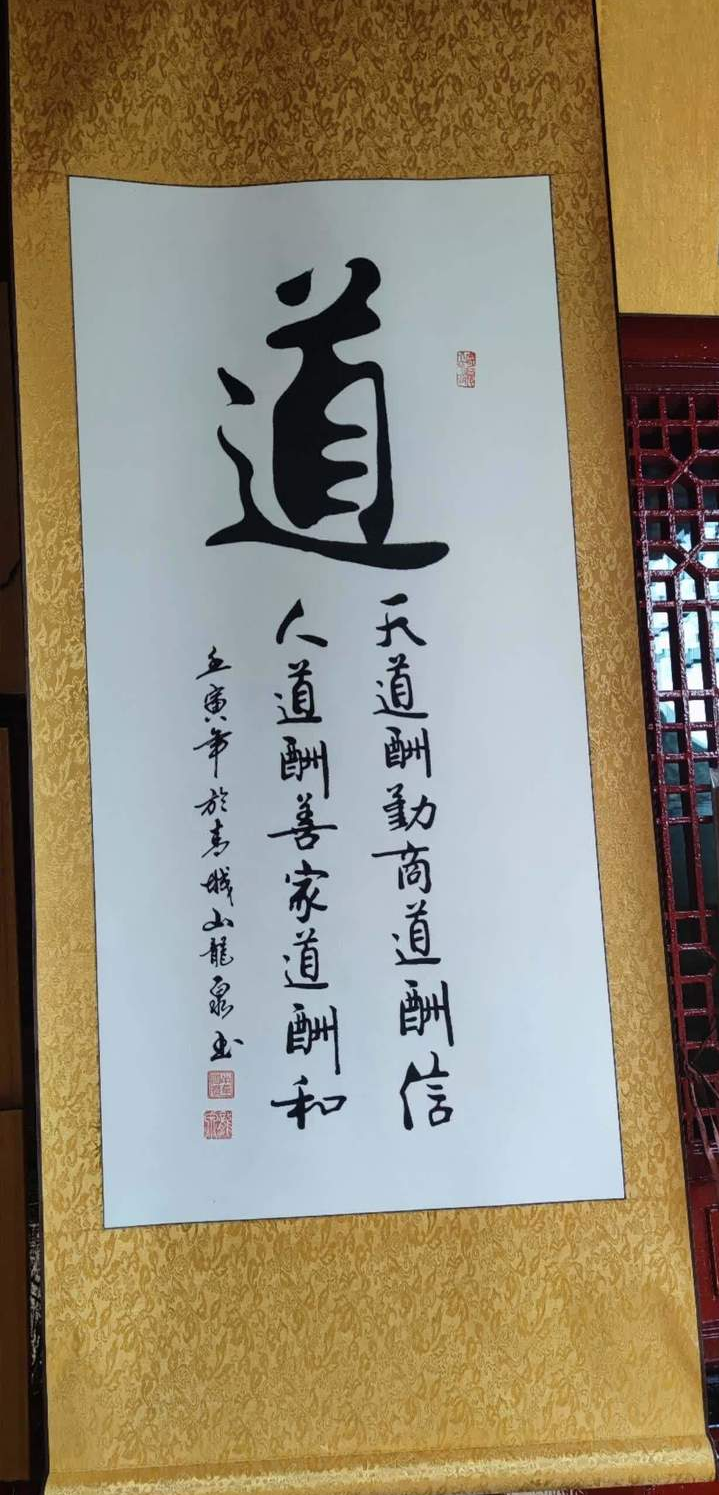 道
天道酬勤商道酬信
人道酬善家道酬和
壬寅年於青城山龍泉书